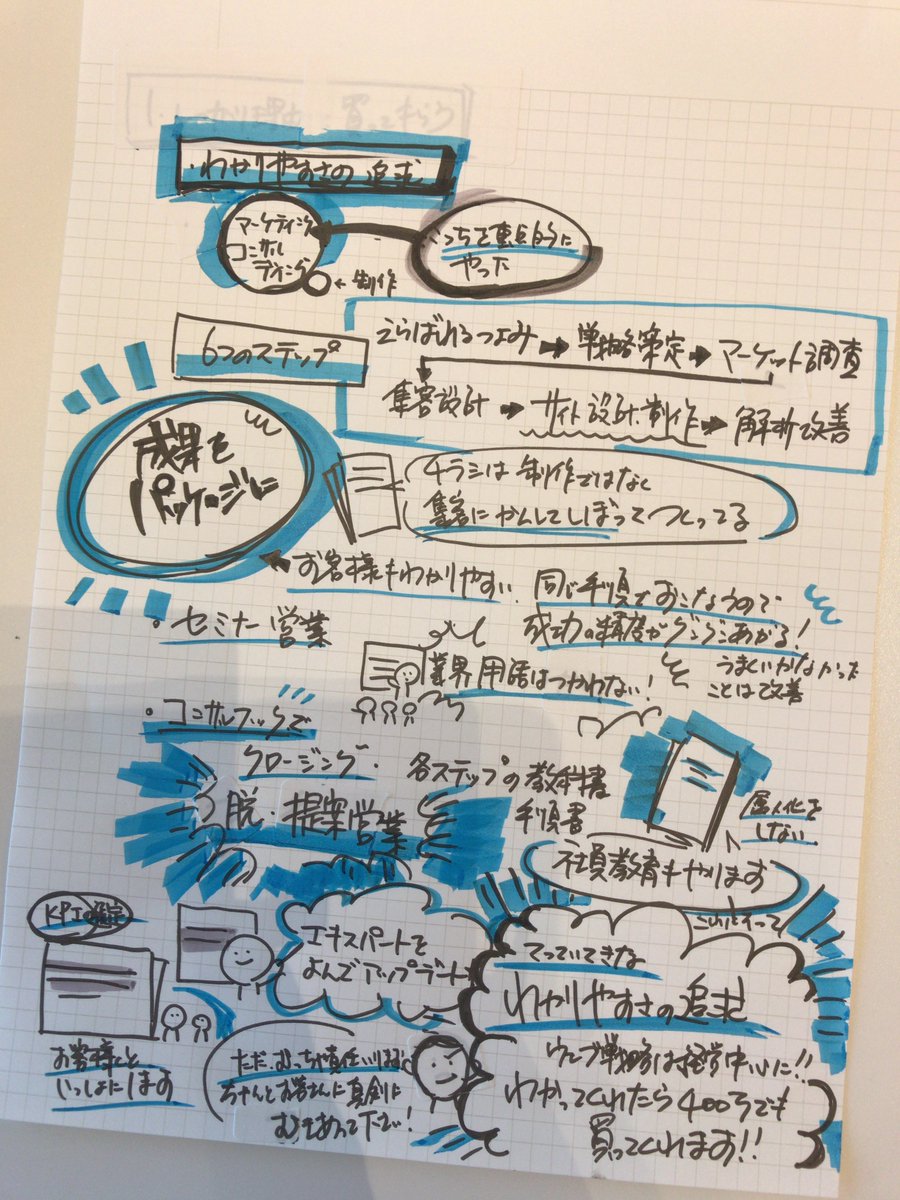 ・わかりやすさの追求
マーケティング
コンサル
ティング
←制作
こっちを重点的に
やった
6つのステップ
えらばれるつよみ→戦略策定→マーケット調査
集客設計→サイト設計・制作→解析・改善
成果を
パッケージに
チラシは制作ではなく
集客にかんしてしぼってつくってる
お客様もわかりやすい
同じ手順でおこなうので
成功の精度がグングンあがる!
うまくいかなかった
ことは改善
・セミナー営業
業界用語はつかわない!
・コンサルブックで
クロージング・
脱・提案営業
各ステップの教科書
手順書
属人化を
しない
社員教育もやります
KPIの設定
お客様と
いっしょにします
エキスパートを
よんでアップデート
ただ、むっちゃ責任
ちゃんとお客さんに真剣に
むきあって下さい!
てっていてきな
わかりやすさの追求
ウェブ戦略は経営中心に!!
わかってくれたら400万でも
買ってくれます!!